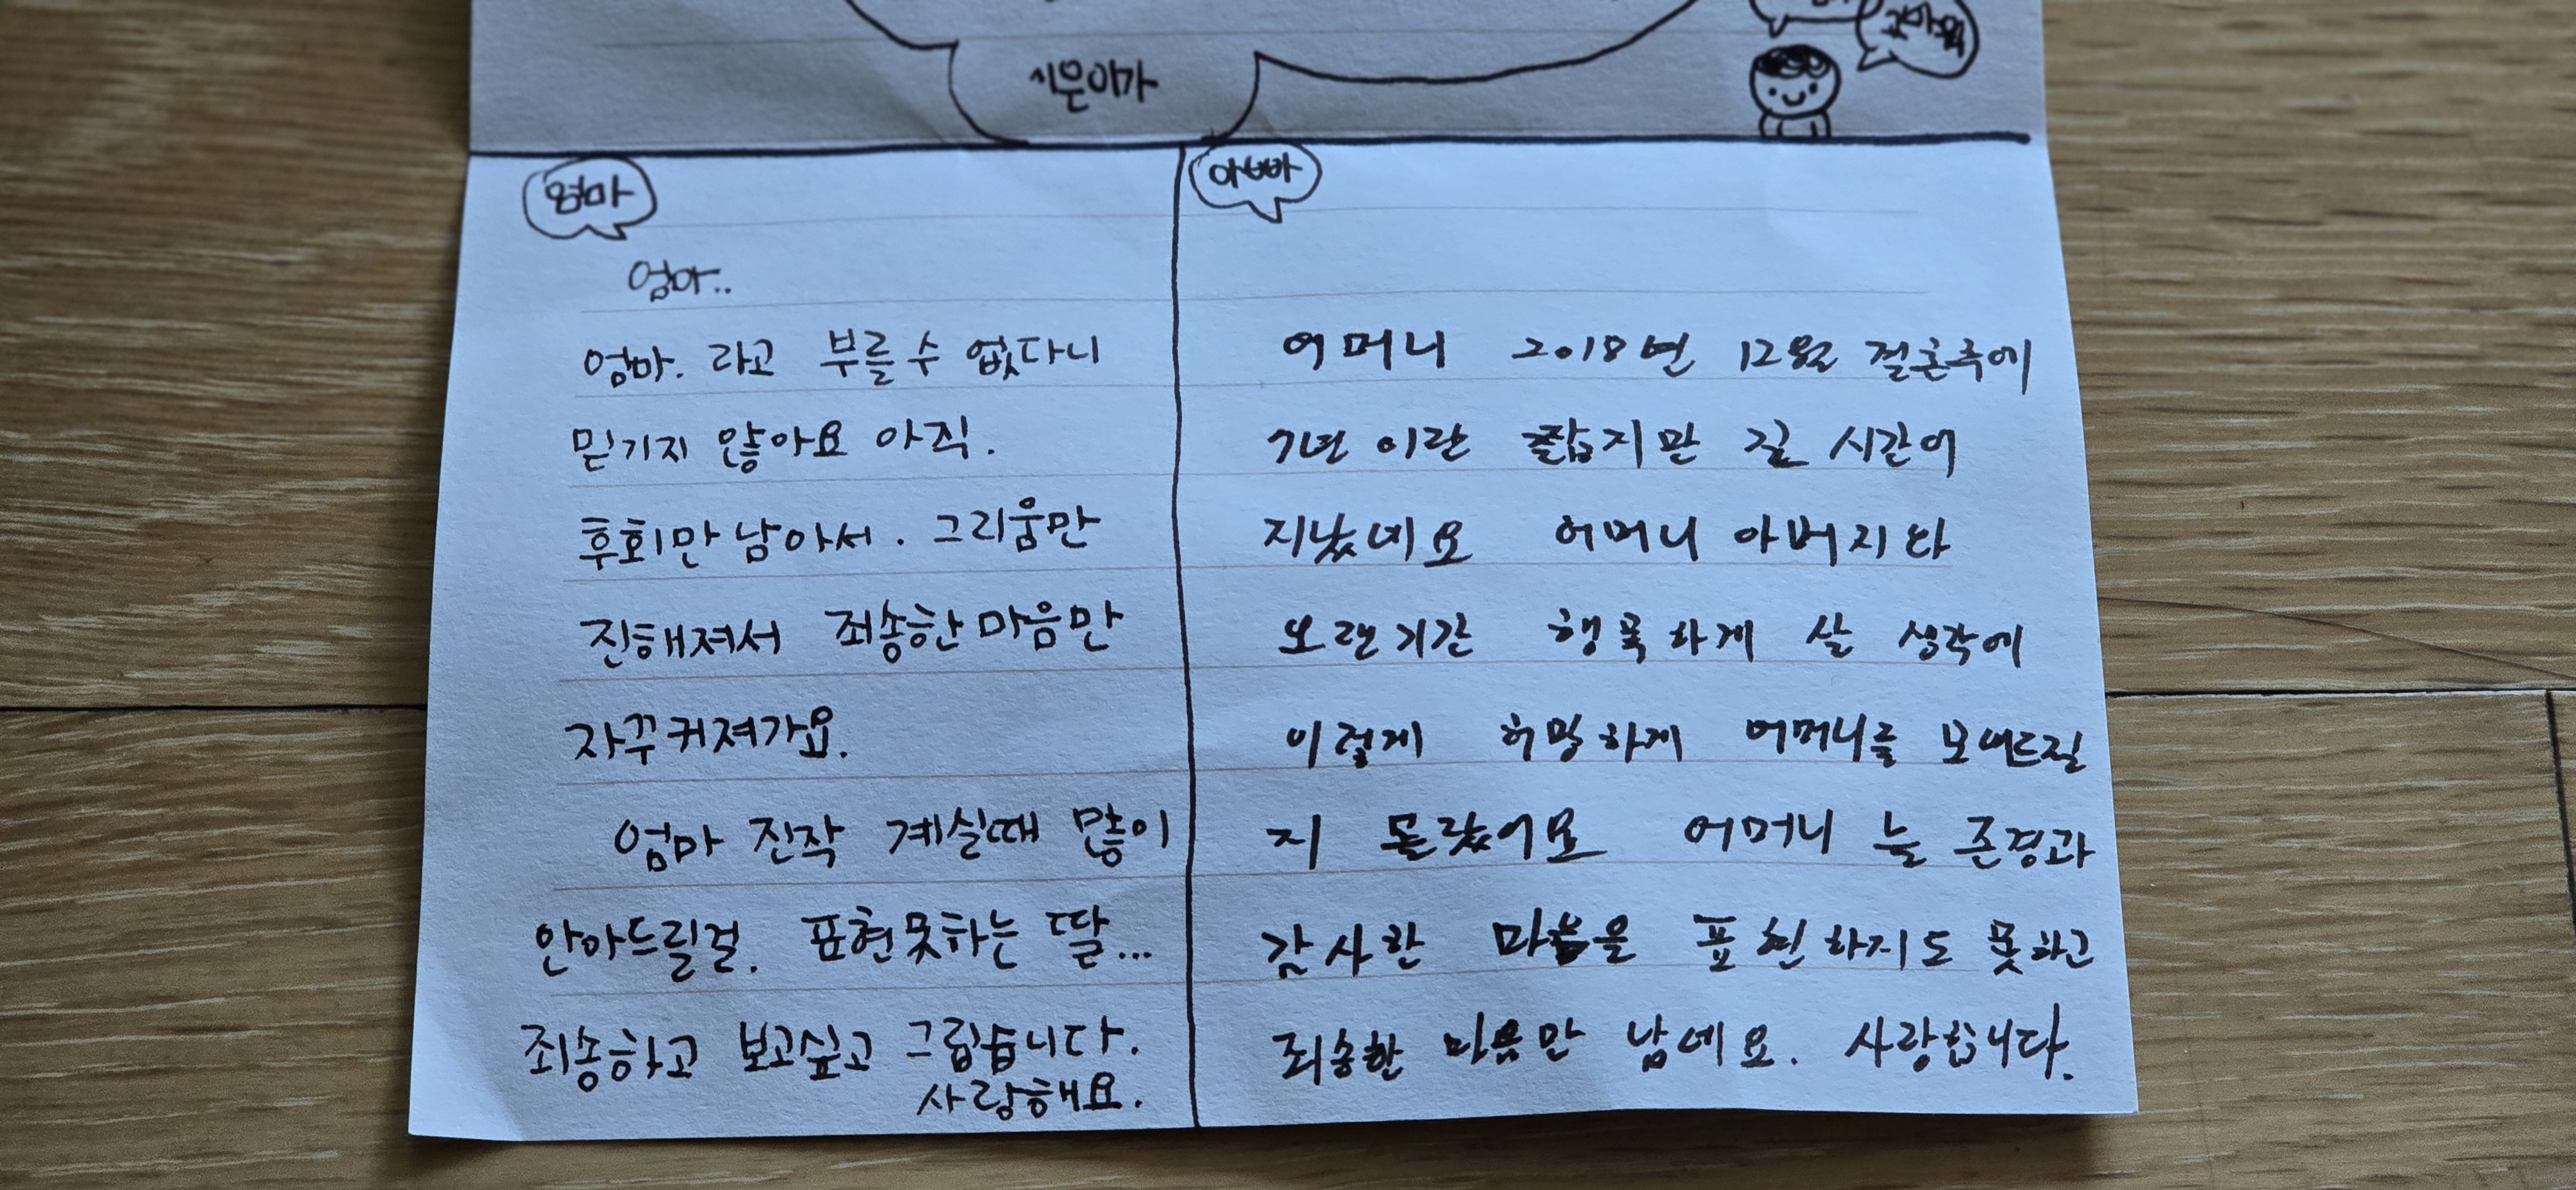 고마워
시은이가
엄마
엄마..
엄마. 라고 부를 수 없다니
믿기지 않아요 아직.
후회만 남아서. 그리움만
진해져서 죄송한 마음만
자꾸 커져가요.
엄마 진작 계실때 많이
안아드릴걸. 표현못하는 딸...
죄송하고 보고싶고 그립습니다.
사랑해요.
아빠
어머니 2018년 12월 결혼후에
7년 이란 짧지만 긴 시간이
지났네요 어머니 아버지와
오랜기간 행복하게 살 생각에
이렇게 허망하게 어머니를 보내드릴
지 몰랐어요 어머니 늘 존경과
감사한 마음을 표현하지도 못하고
죄송한 마음만 남네요. 사랑합니다.